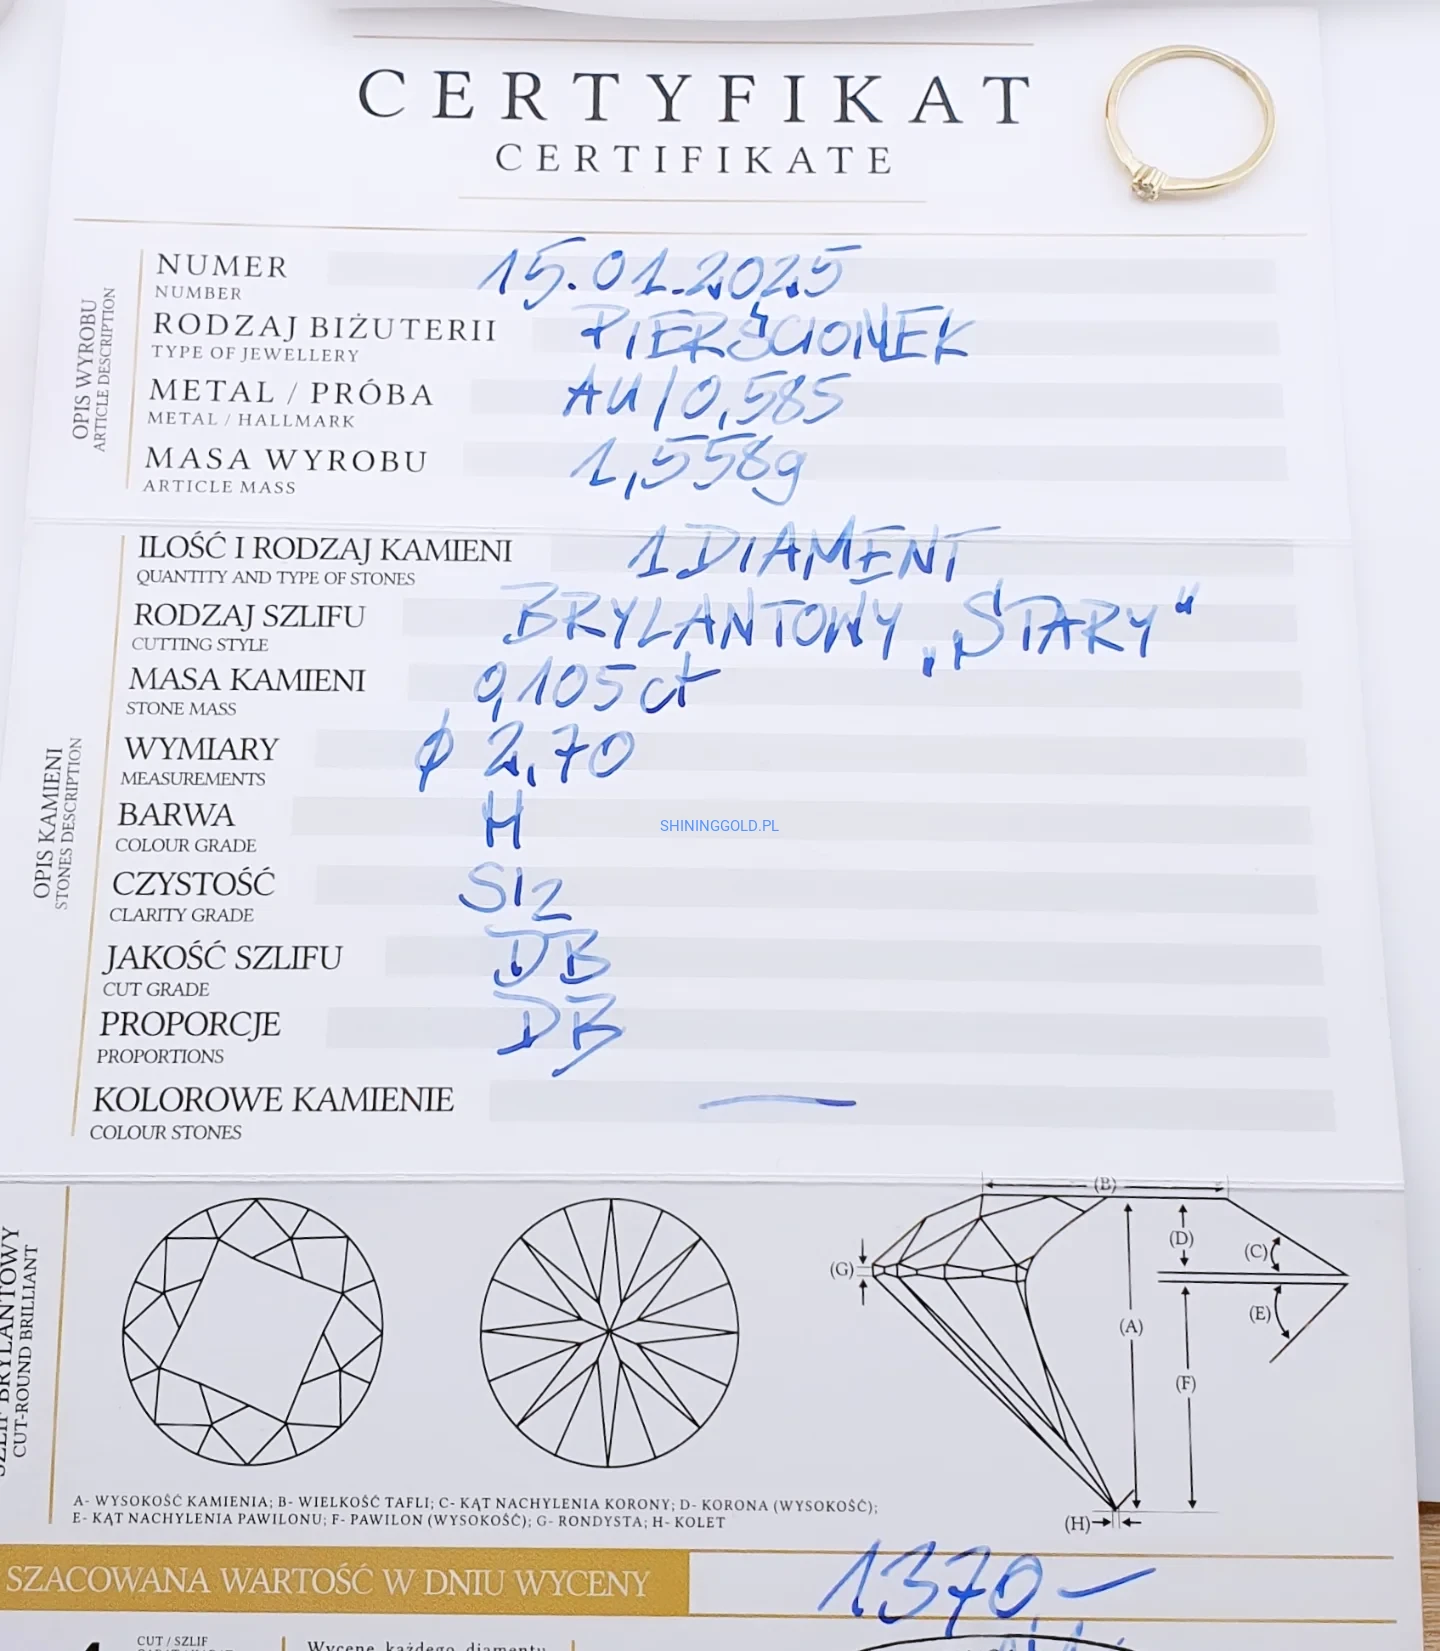 CERTYFIKAT
CERTIFIKATE
OPIS WYROBU
ARTICLE DESCRIPTION
NUMER 15.01.2025
NUMBER
RODZAJ BIŻUTERII PIERŚCIONEK
TYPE OF JEWELLERY
METAL / PRÓBA AU/0,585
METAL / HALLMARK
MASA WYROBU 1,558g
ARTICLE MASS
OPIS KAMIENI
STONES DESCRIPTION
ILOŚĆ I RODZAJ KAMIENI 1 DIAMENT
QUANTITY AND TYPE OF STONES
RODZAJ SZLIFU BRYLANTOWY „STARY"
CUTTING STYLE
MASA KAMIENI 0,105 ct
STONE MASS
WYMIARY ϕ 2,70
MEASUREMENTS
BARWA H
COLOUR GRADE
SHININGGOLD.PL
CZYSTOŚĆ SI2
CLARITY GRADE
JAKOŚĆ SZLIFU DB
CUT GRADE
PROPORCJE DB
PROPORTIONS
KOLOROWE KAMIENIE —
COLOUR STONES
SZLIF BRYLANTOWY
CUT-ROUND BRILLIANT
(B)
(D)
(C)
(G)
(E)
(A)
(F)
(H)
A- WYSOKOŚĆ KAMIENIA; B- WIELKOŚĆ TAFLI; C- KĄT NACHYLENIA KORONY; D- KORONA (WYSOKOŚĆ);
E- KĄT NACHYLENIA PAWILONU; F- PAWILON (WYSOKOŚĆ); G- RONDYSTA; H- KOLET
SZACOWANA WARTOŚĆ W DNIU WYCENY 1370,—
CUT / SZLIF
Wycenę każdego diamentu